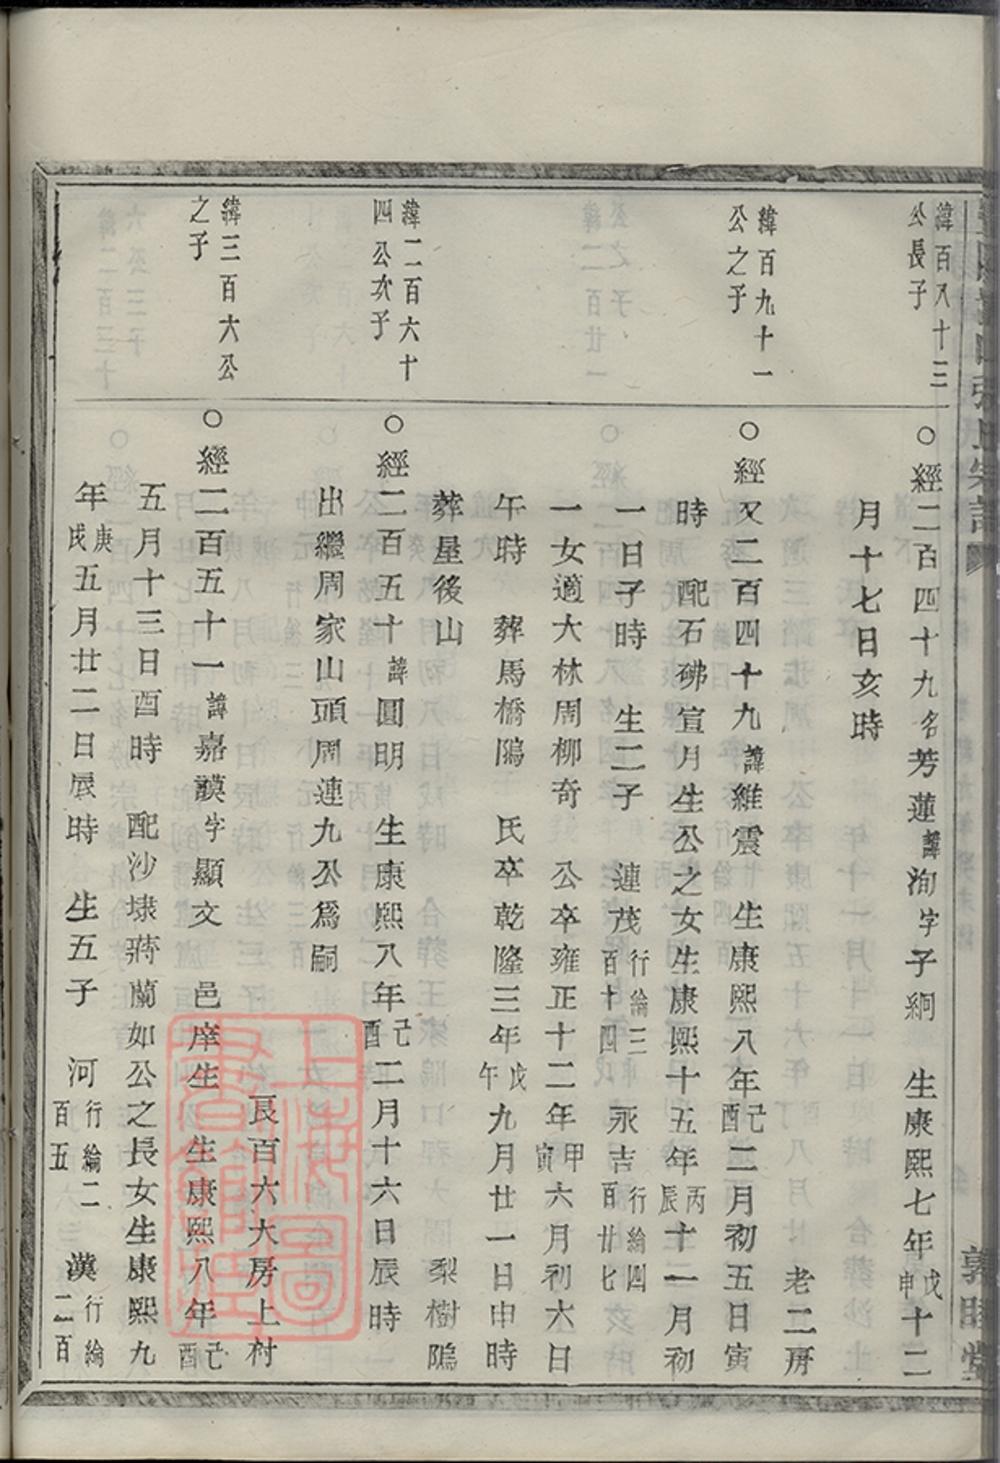 緯百八十三
公長子
○經二百四十九名芳蓮諱洵字子絅　生康熙七年戊申十二
月十七日亥時
老二房
緯百九十一
公之子
○經又二百四十九諱維震　生康熙八年己酉二月初五日寅
時　配石硑宣月生公之女生康熙十五年丙辰十一月初
一日子時　生二子　連茂行綸三百十四　永吉行綸四百廿七
一女適大林周柳奇　公卒雍正十二年甲寅六月初六日
午時　葬馬橋隖　氏卒乾隆三年戊午九月廿一日申時
葬屋後山
梨樹隖
緯二百六十
四公次子
○經二百五十諱圓明　生康熙八年己酉二月十六日辰時
出繼周家山頭周連九公爲嗣
良百六大房上村
緯三百六公
之子
○經二百五十一諱嘉謨字顯文　邑庠生　生康熙八年己酉
五月十三日酉時　配沙埭蔣蘭如公之長女生康熙九
年庚戌五月廿二日辰時　生五子　河行綸二百五　漢行綸二百
張氏宗譜
敦睦堂
上海圖書館藏